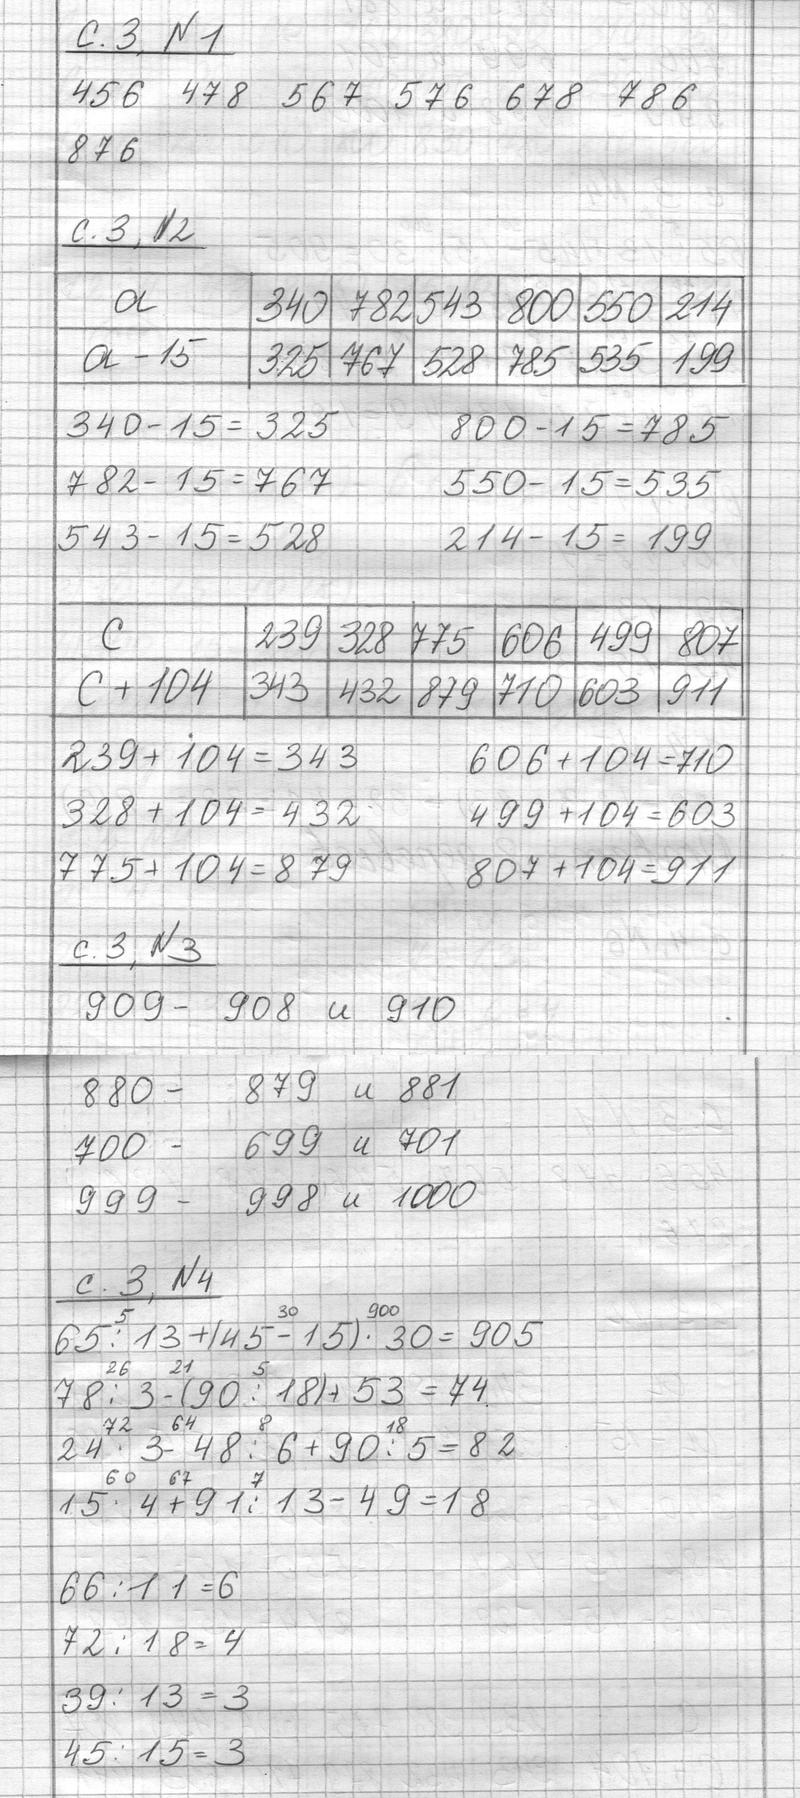 с. 3, N1
456 478 567 576 678 786
876
с. 3, N2
a 340 782 543 800 550 214
a - 15 325 767 528 785 535 199
340 - 15 = 325 800 - 15 = 785
782 - 15 = 767 550 - 15 = 535
543 - 15 = 528 214 - 15 = 199
c 239 328 775 606 499 807
c + 104 343 432 879 710 603 911
239 + 104 = 343 606 + 104 = 710
328 + 104 = 432 499 + 104 = 603
775 + 104 = 879 807 + 104 = 911
с. 3, N3
909 - 908 и 910
880 - 879 и 881
700 - 699 и 701
999 - 998 и 1000
с. 3, N4
5 30 900
65 : 13 + (45 - 15) · 30 = 905
26 21 5
78 : 3 - (90 : 18) + 53 = 74
72 64 8 18
24 · 3 - 48 : 6 + 90 : 5 = 82
60 67 7
15 · 4 + 91 : 13 - 49 = 18
66 : 11 = 6
72 : 18 = 4
39 : 13 = 3
45 : 15 = 3